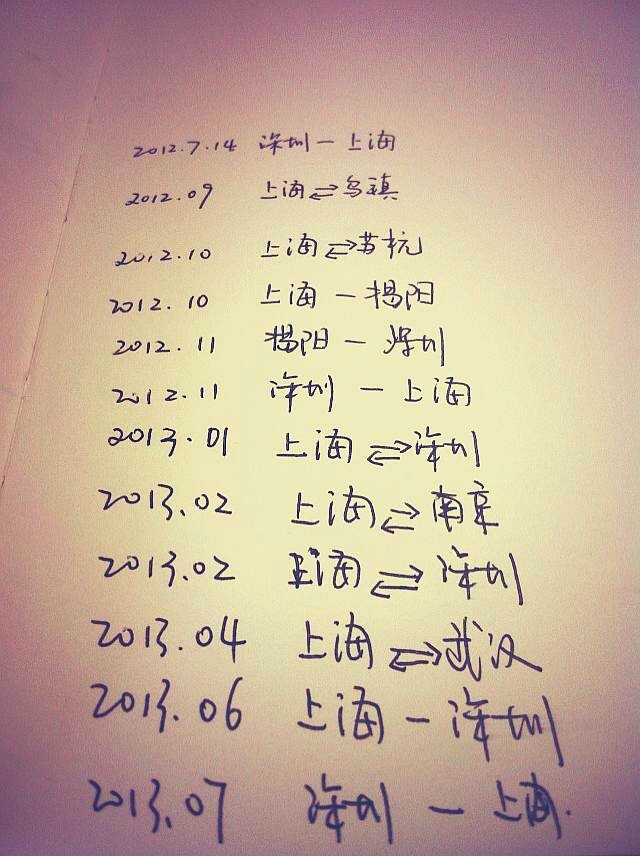 2012.7.14 深圳—上海
2012.09 上海⇌乌镇
2012.10 上海⇌苏杭
2012.10 上海—揭阳
2012.11 揭阳—深圳
2012.11 深圳—上海
2013.01 上海⇌深圳
2013.02 上海⇌南京
2013.02 上海⇌深圳
2013.04 上海⇌武汉
2013.06 上海—深圳
2013.07 深圳—上海.